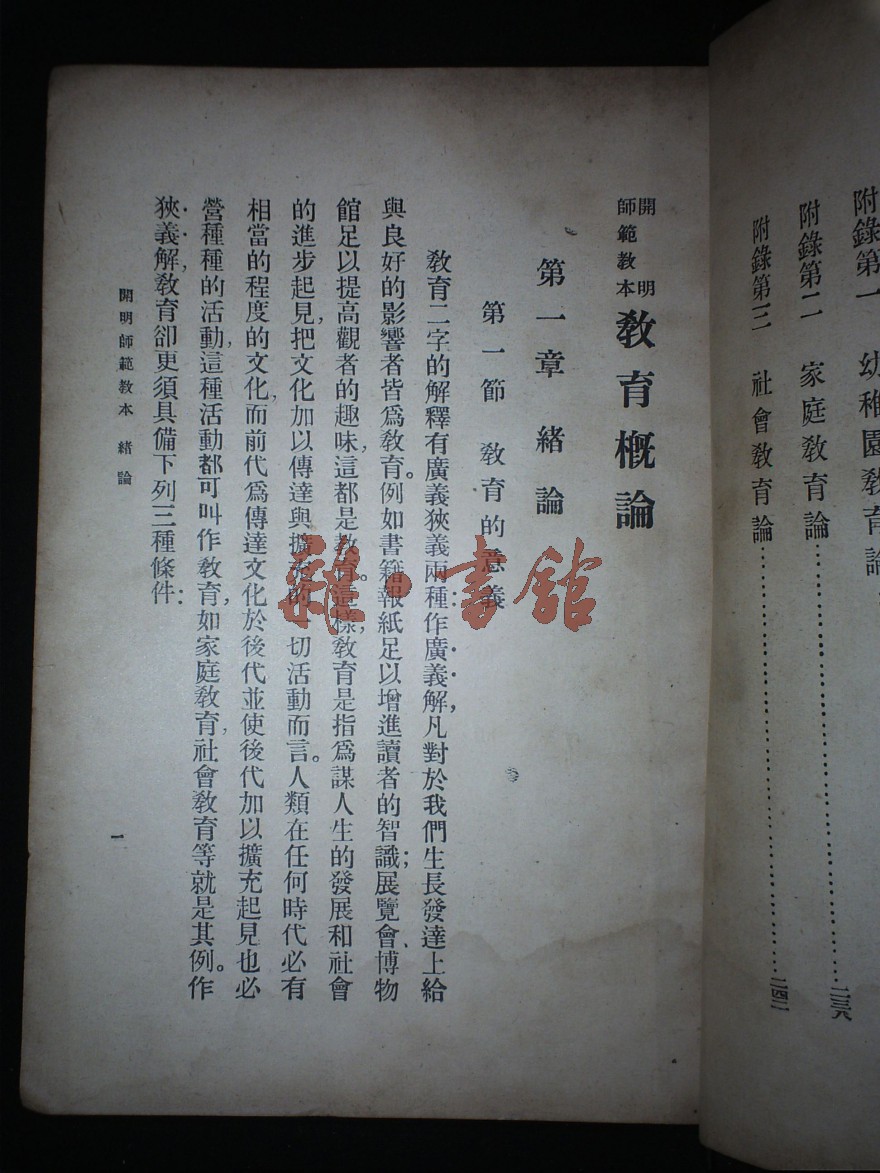 附錄第一　幼稚園教育論
附錄第二　家庭教育論…………二三八
附錄第三　社會教育論…………二四二
開明
師範教本
教育概論
第一章　緒論
第一節　教育的意義
教育二字的解釋有廣義狹義兩種：作廣義解，凡對於我們生長發達上給
與良好的影響者皆爲教育。例如書籍報紙足以增進讀者的智識；展覽會、博物
館足以提高觀者的趣味，這都是教育。這樣，教育是指爲謀人生的發展和社會
的進步起見，把文化加以傳達與擴充的一切活動而言。人類在任何時代必有
相當的程度的文化，而前代爲傳達文化於後代並使後代加以擴充起見也必
營種種的活動，這種活動都可叫作教育，如家庭教育，社會教育等就是其例。作
狹義解，教育卻更須具備下列三種條件：
開明師範教本　緒論
一
雜·書館